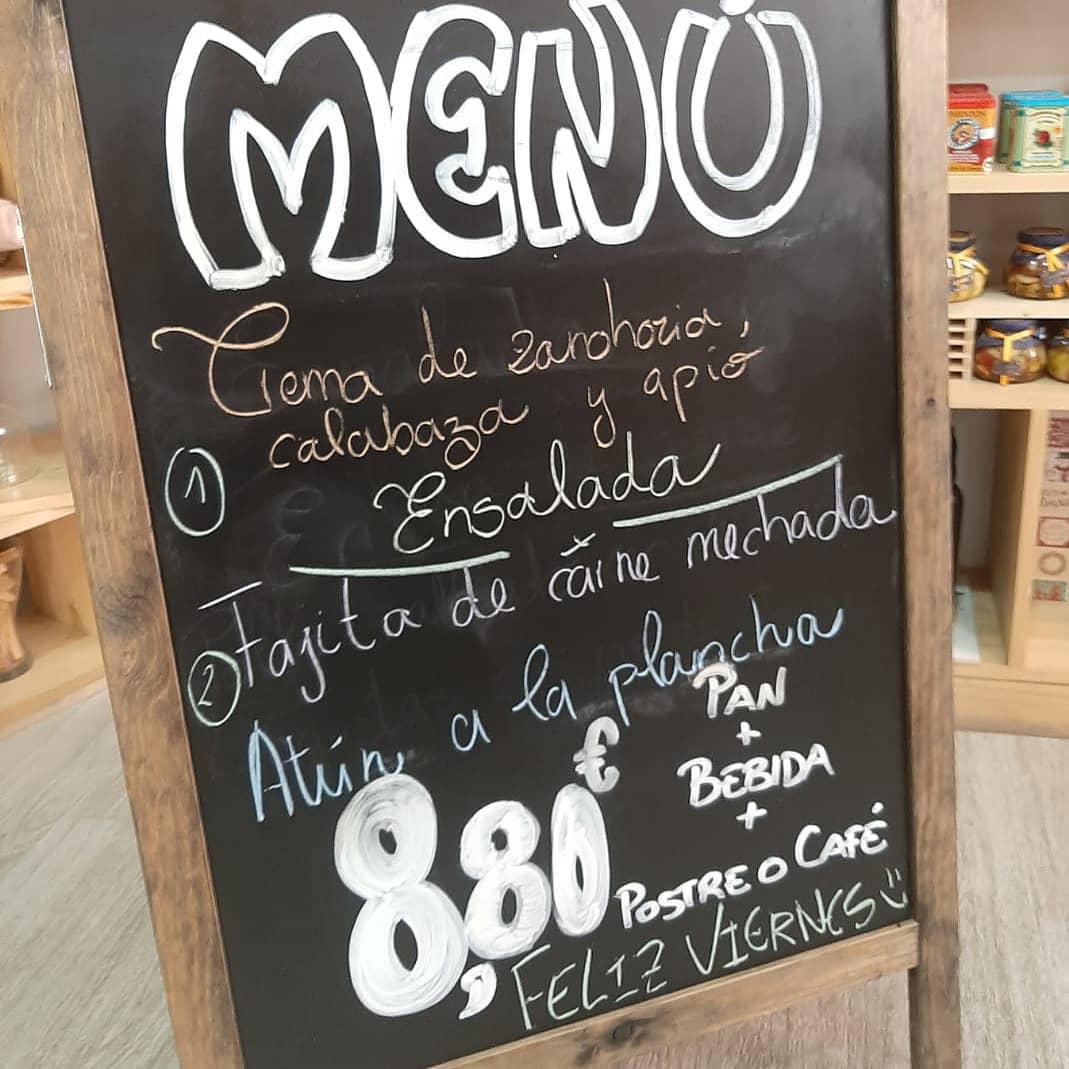 MENÚ
Crema de zanahoria,
calabaza y apio
1
Ensalada
Fajita de carne mechada
2
Atún a la plancha
8,80€
PAN
+
BEBIDA
+
POSTRE O CAFÉ
FELIZ VIERNES